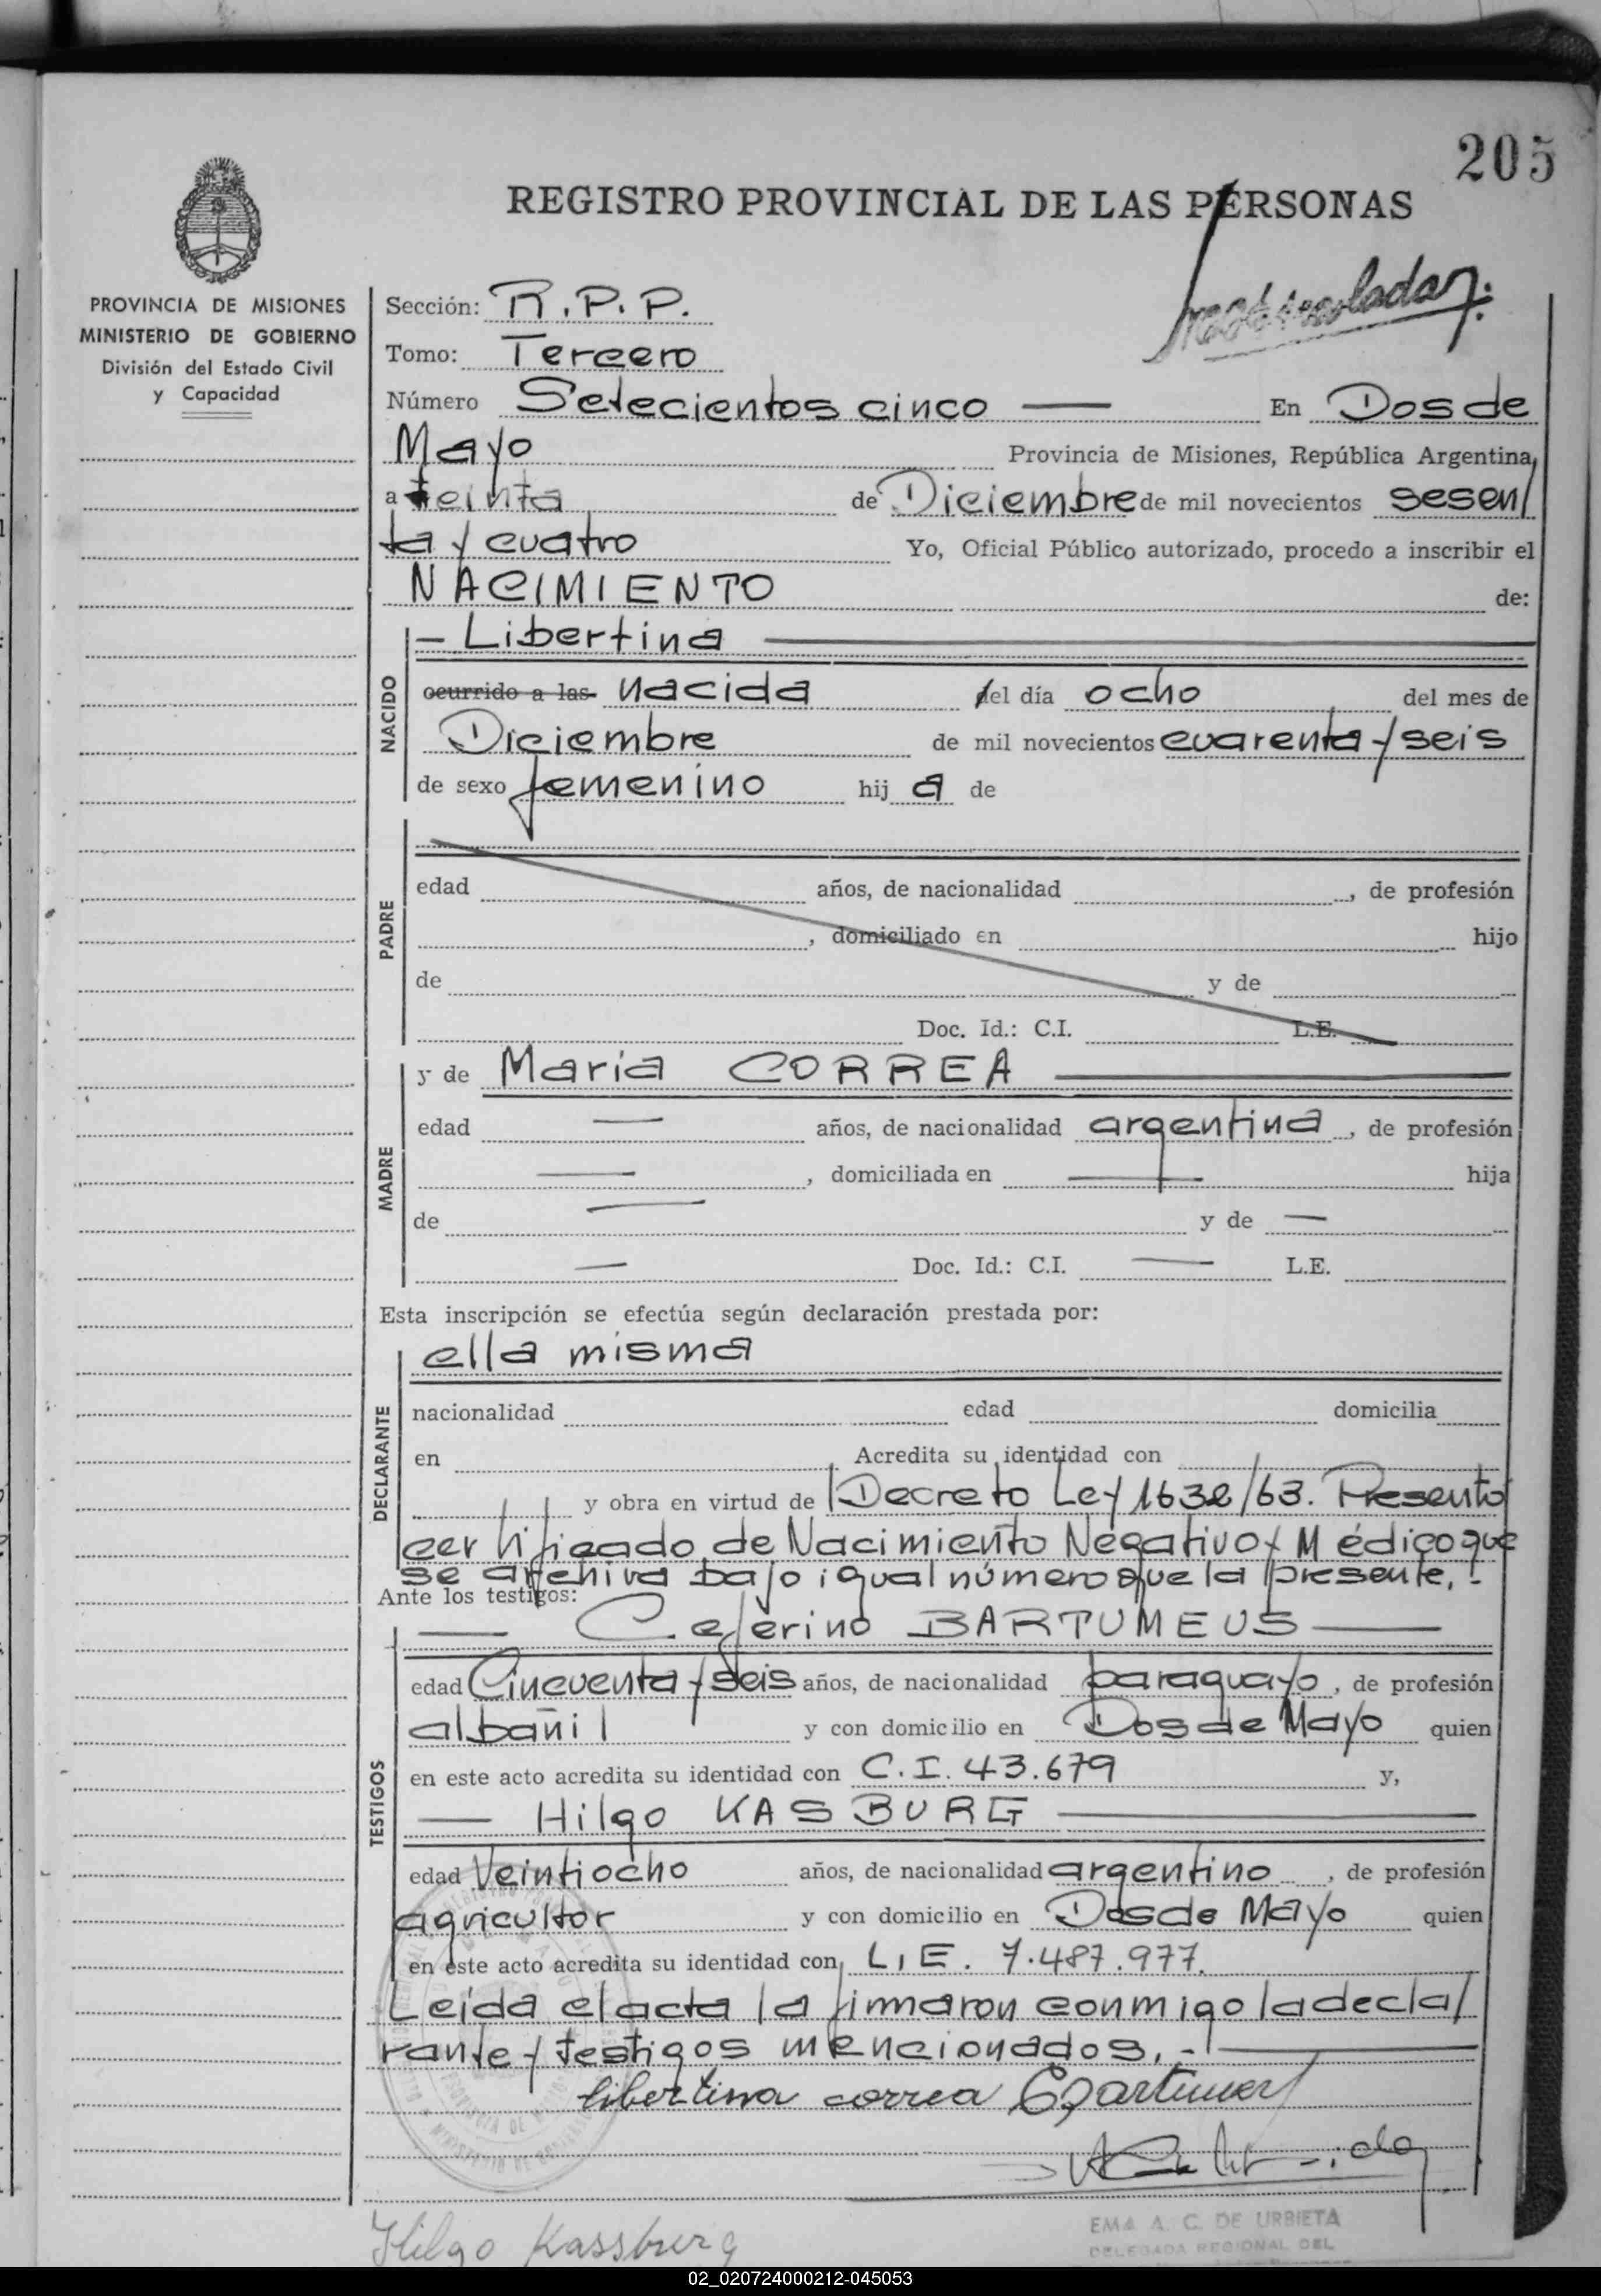 205
REGISTRO PROVINCIAL DE LAS PERSONAS
PROVINCIA DE MISIONES
MINISTERIO DE GOBIERNO
División del Estado Civil
y Capacidad
Sección: R.P.P.
Tomo: Tercero
Número Setecientos cinco — En Dos de
Mayo Provincia de Misiones, República Argentina,
a treinta de Diciembre de mil novecientos sesen/
ta y cuatro Yo, Oficial Público autorizado, procedo a inscribir el
NACIMIENTO de:
NACIDO
— Libertina —
ocurrido a las nacida del día ocho del mes de
Diciembre de mil novecientos cuarenta y seis
de sexo femenino hij a de
PADRE
edad años, de nacionalidad , de profesión
, domiciliado en hijo
de y de
Doc. Id.: C.I. L.E.
MADRE
y de Maria CORREA —
edad — años, de nacionalidad argentina , de profesión
— , domiciliada en — hija
de — y de —
— Doc. Id.: C.I. — L.E.
Esta inscripción se efectúa según declaración prestada por:
DECLARANTE
ella misma
nacionalidad edad domicilia
en Acredita su identidad con
y obra en virtud de Decreto Ley 1632/63. Presento
certificado de Nacimiento Negativo y Médico que
se archiva bajo igual número que la presente.-
Ante los testigos:
TESTIGOS
— Ceferino BARTUMEUS —
edad Cincuenta y seis años, de nacionalidad paraguayo , de profesión
albañil y con domicilio en Dos de Mayo quien
en este acto acredita su identidad con C.I. 43.679 y,
— Hilgo KASBURG —
edad Veintiocho años, de nacionalidad argentino , de profesión
agricultor y con domicilio en Dos de Mayo quien
en este acto acredita su identidad con L.E. 7.487.977.
Leida el acta la firmaron conmigo la decla/
rante y testigos mencionados.-
libertina correa
Hilgo Kassburg
EMA A. C. DE URBIETA
DELEGADA REGIONAL DEL
02_020724000212-045053